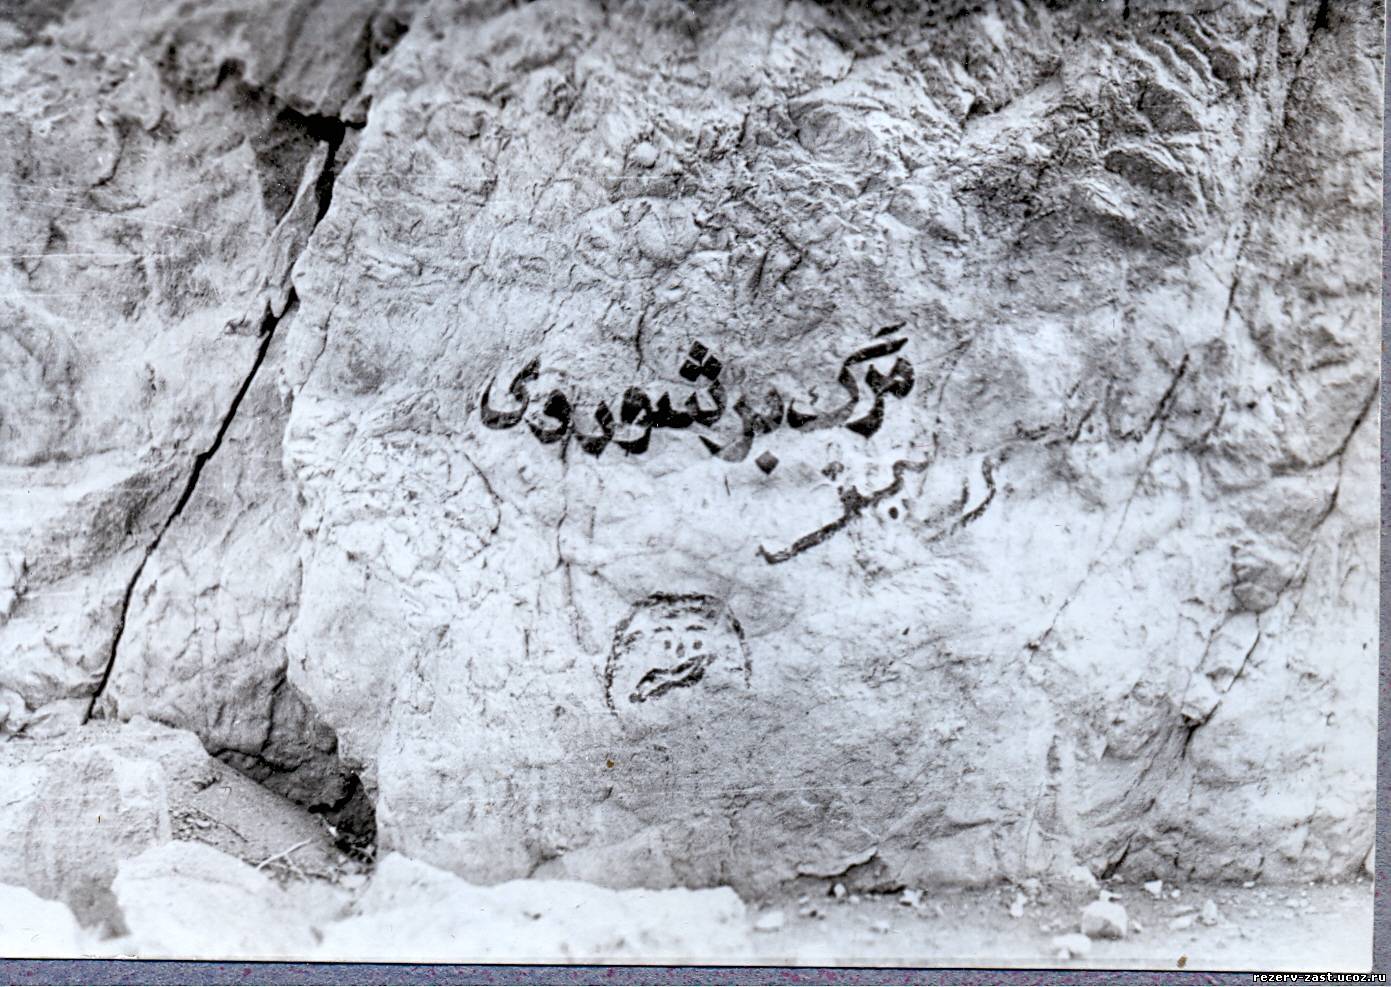 مرگ بر شوروی
rezerv-zast.ucoz.ru